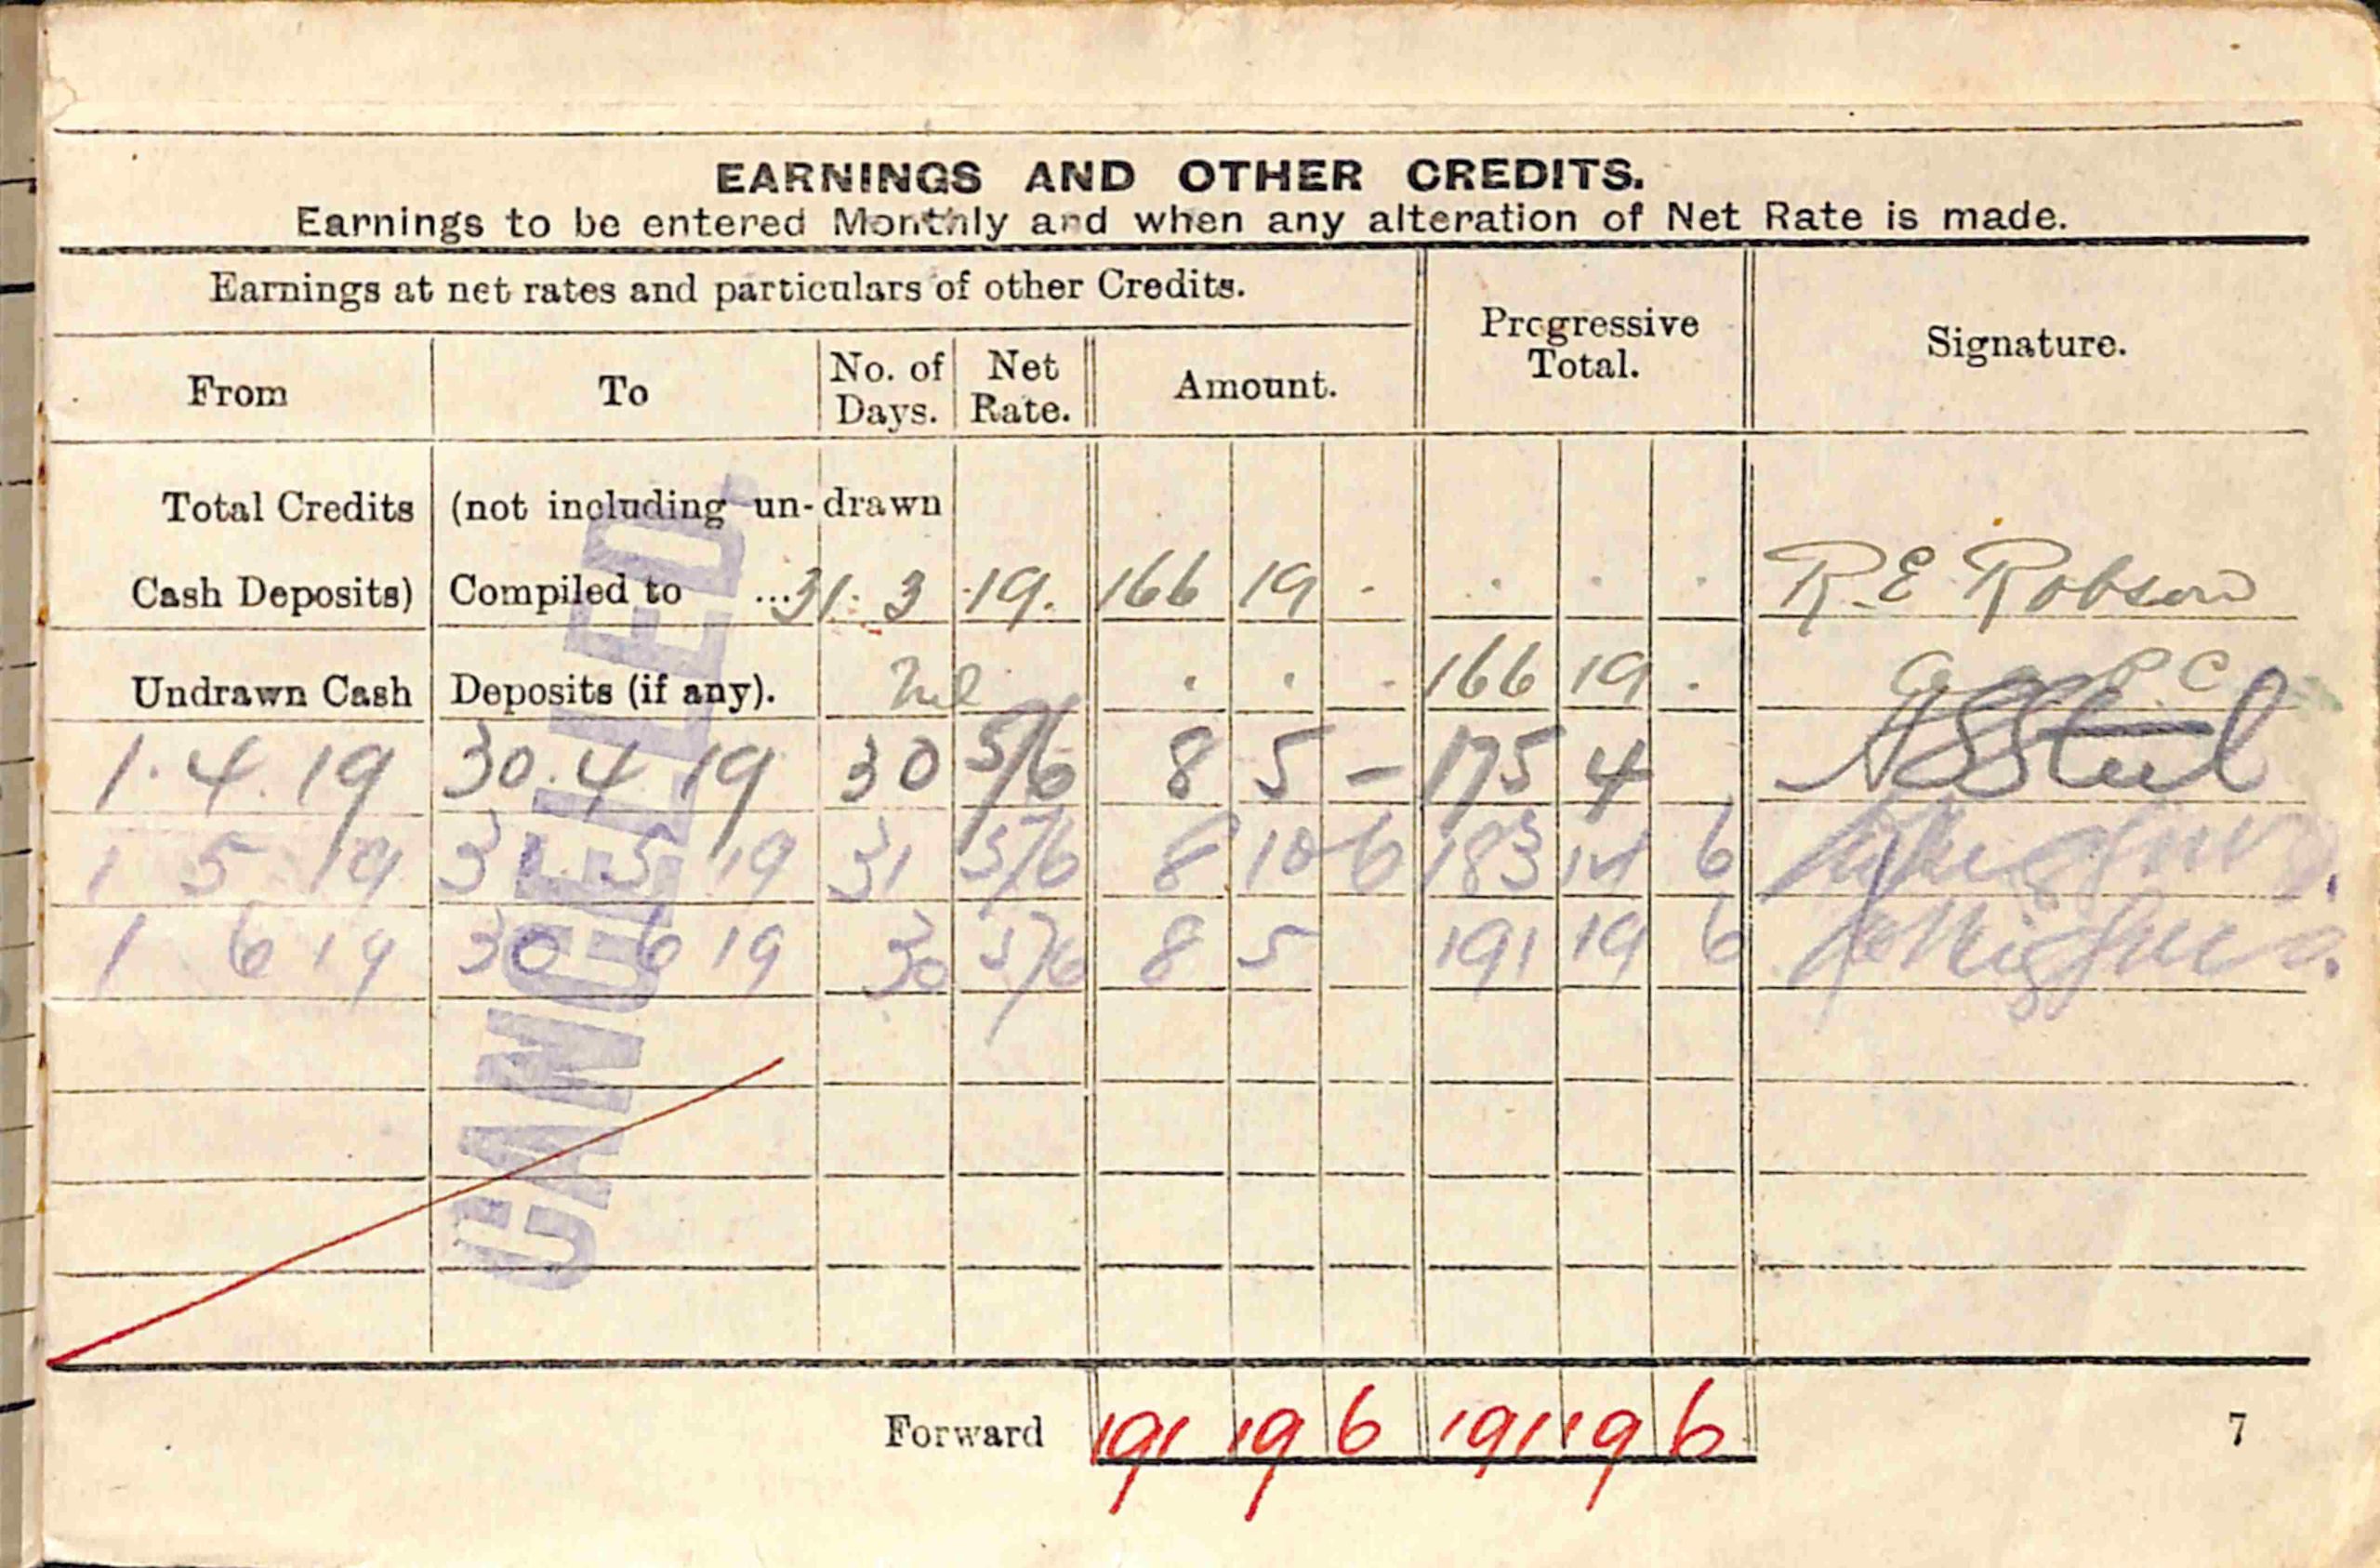 EARNINGS AND OTHER CREDITS.
Earnings to be entered Monthly and when any alteration of Net Rate is made.
Earnings at net rates and particulars of other Credits.
Progressive Total.
Signature.
From To No. of Days. Net Rate. Amount.
Total Credits (not including un-drawn
Cash Deposits) Compiled to ... 31. 3 .19. 166 19 . . . . R.E Robson
Undrawn Cash Deposits (if any). Nil . . . 166 19 .
1.4.19 30.4.19 30 5/6 8 5 - 175 4
1 5 19 31 5 19 31 5/6 8 10 6 183 14 6
1 6 19 30 6 19 30 5/6 8 5 191 19 6
CANCELLED.
Forward 191 19 6 191 19 6
7